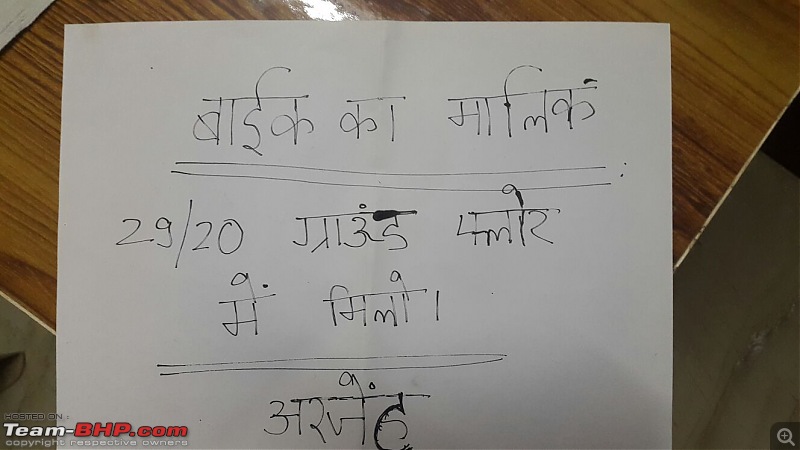 बाईक का मालिकं
29/20 ग्राऊंड फ्लोर
में मिलो।
अरजेंट
HOSTED ON :
Team-BHP.com
copyright respective owners